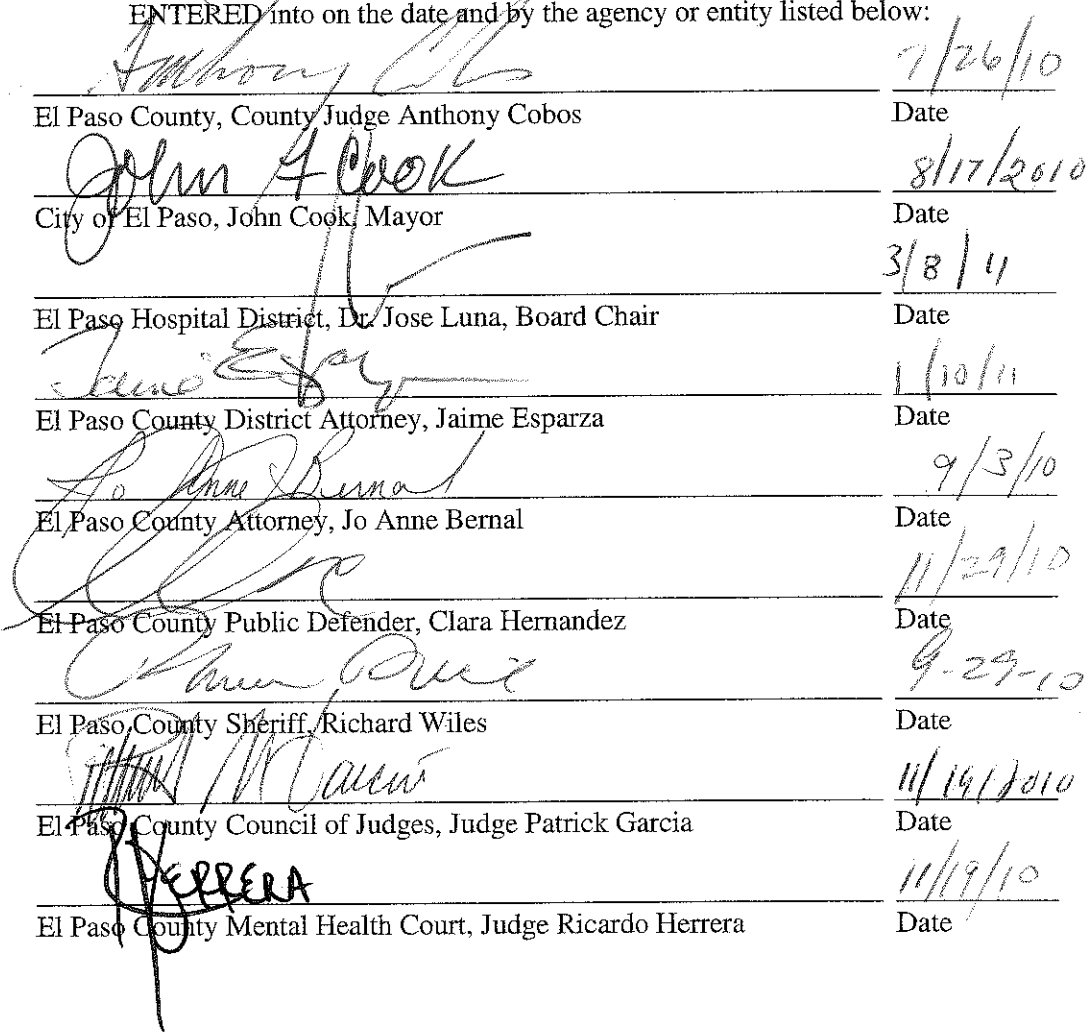 ENTERED into on the date and by the agency or entity listed below:
Anthony Cobos 7/26/10
El Paso County, County Judge Anthony Cobos Date
John F Cook 8/17/2010
City of El Paso, John Cook, Mayor Date
3/8/11
El Paso Hospital District, Dr. Jose Luna, Board Chair Date
Jaime Esparza 1/10/11
El Paso County District Attorney, Jaime Esparza Date
Jo Anne Bernal 9/3/10
El Paso County Attorney, Jo Anne Bernal Date
11/29/10
El Paso County Public Defender, Clara Hernandez Date
9-29-10
El Paso County Sheriff, Richard Wiles Date
M Garcia 11/19/2010
El Paso County Council of Judges, Judge Patrick Garcia Date
RHERRERA 11/19/10
El Paso County Mental Health Court, Judge Ricardo Herrera Date